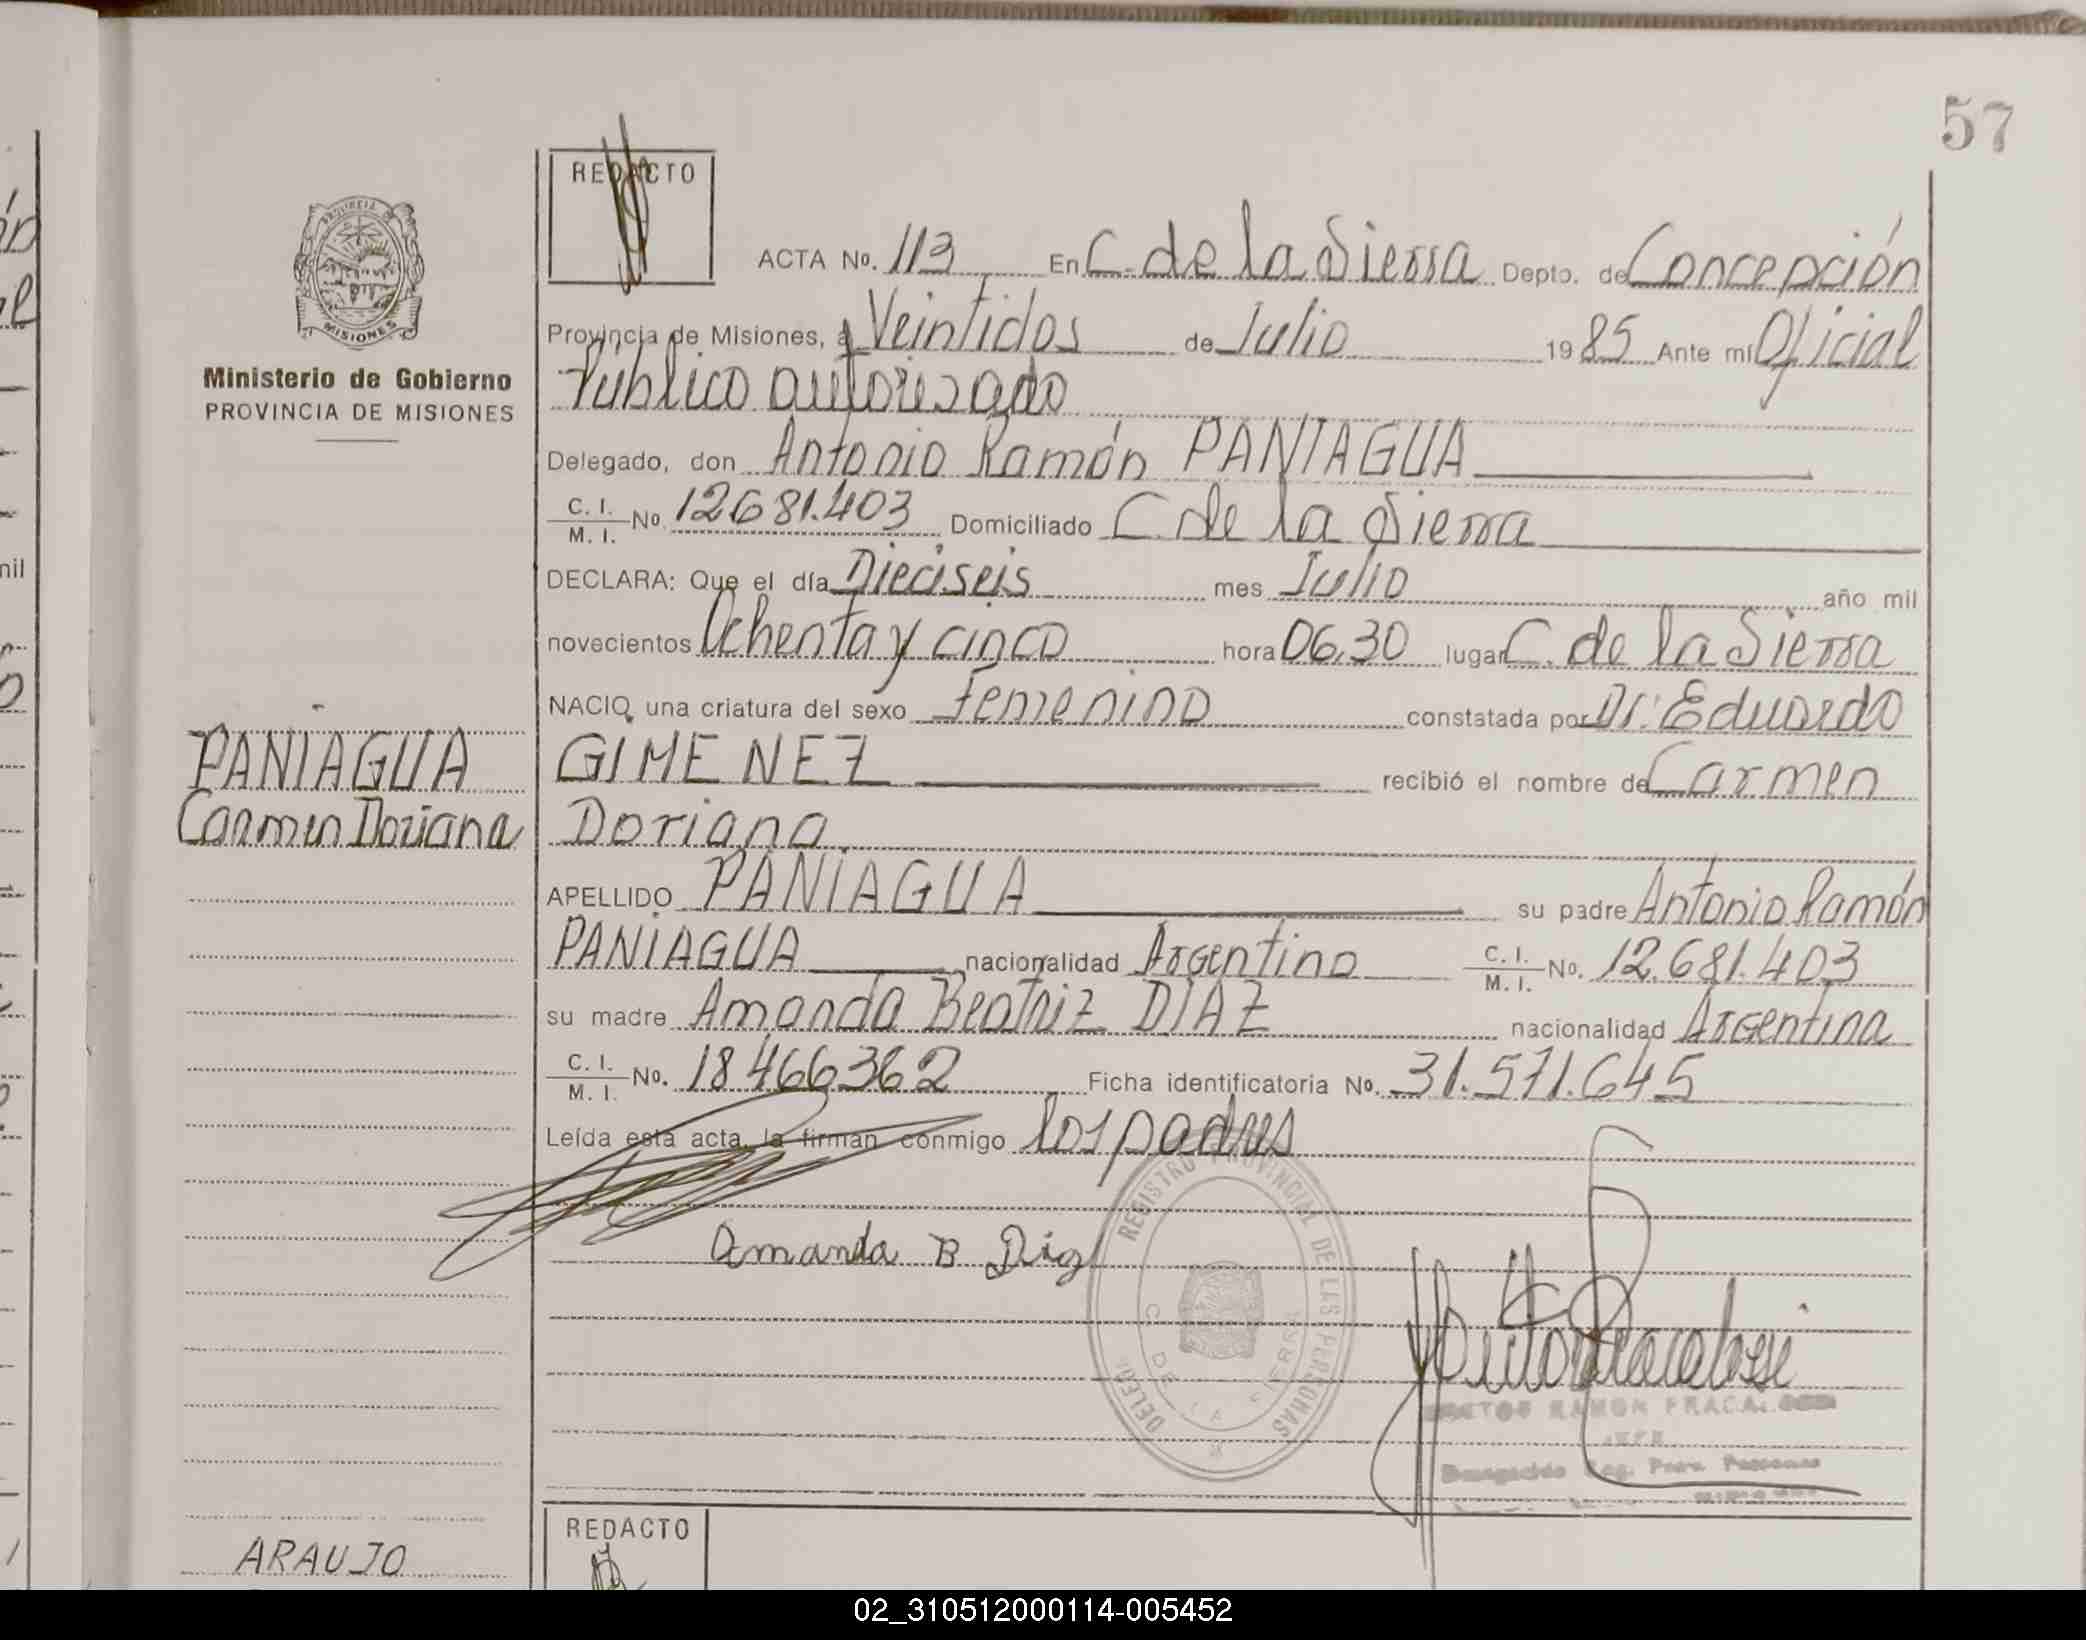 57
REDACTO
ACTA No. 113 En C. de la Sierra Depto. de Concepción
Provincia de Misiones, a Veintidos de Julio 1985 Ante mí Oficial
Público autorizado
Delegado, don Antonio Ramón PANIAGUA
C. I.
M. I. No. 12681.403 Domiciliado C. de la Sierra
DECLARA: Que el día Dieciseis mes Julio año mil
novecientos Ochenta y cinco hora 06,30 lugar C. de la Sierra
NACIO una criatura del sexo Femenino constatada por Dr. Eduardo
GIMENEZ recibió el nombre de Carmen
Doriana
APELLIDO PANIAGUA su padre Antonio Ramón
PANIAGUA nacionalidad Argentino C. I.
M. I. No. 12.681.403
su madre Amanda Beatriz DIAZ nacionalidad Argentina
C. I.
M. I. No. 18466362 Ficha identificatoria No. 31.571.645
Leída esta acta, la firman conmigo los padres
Amanda B Diaz
REGISTRO PROVINCIAL DE LAS PERSONAS
C. DE LA SIERRA
RAMON FRACALOSSI
JEFE
Delegación Reg. Prov. Personas
PROVINCIA DE
MISIONES
Ministerio de Gobierno
PROVINCIA DE MISIONES
PANIAGUA
Carmen Doriana
ARAUJO
REDACTO
mil
02_310512000114-005452